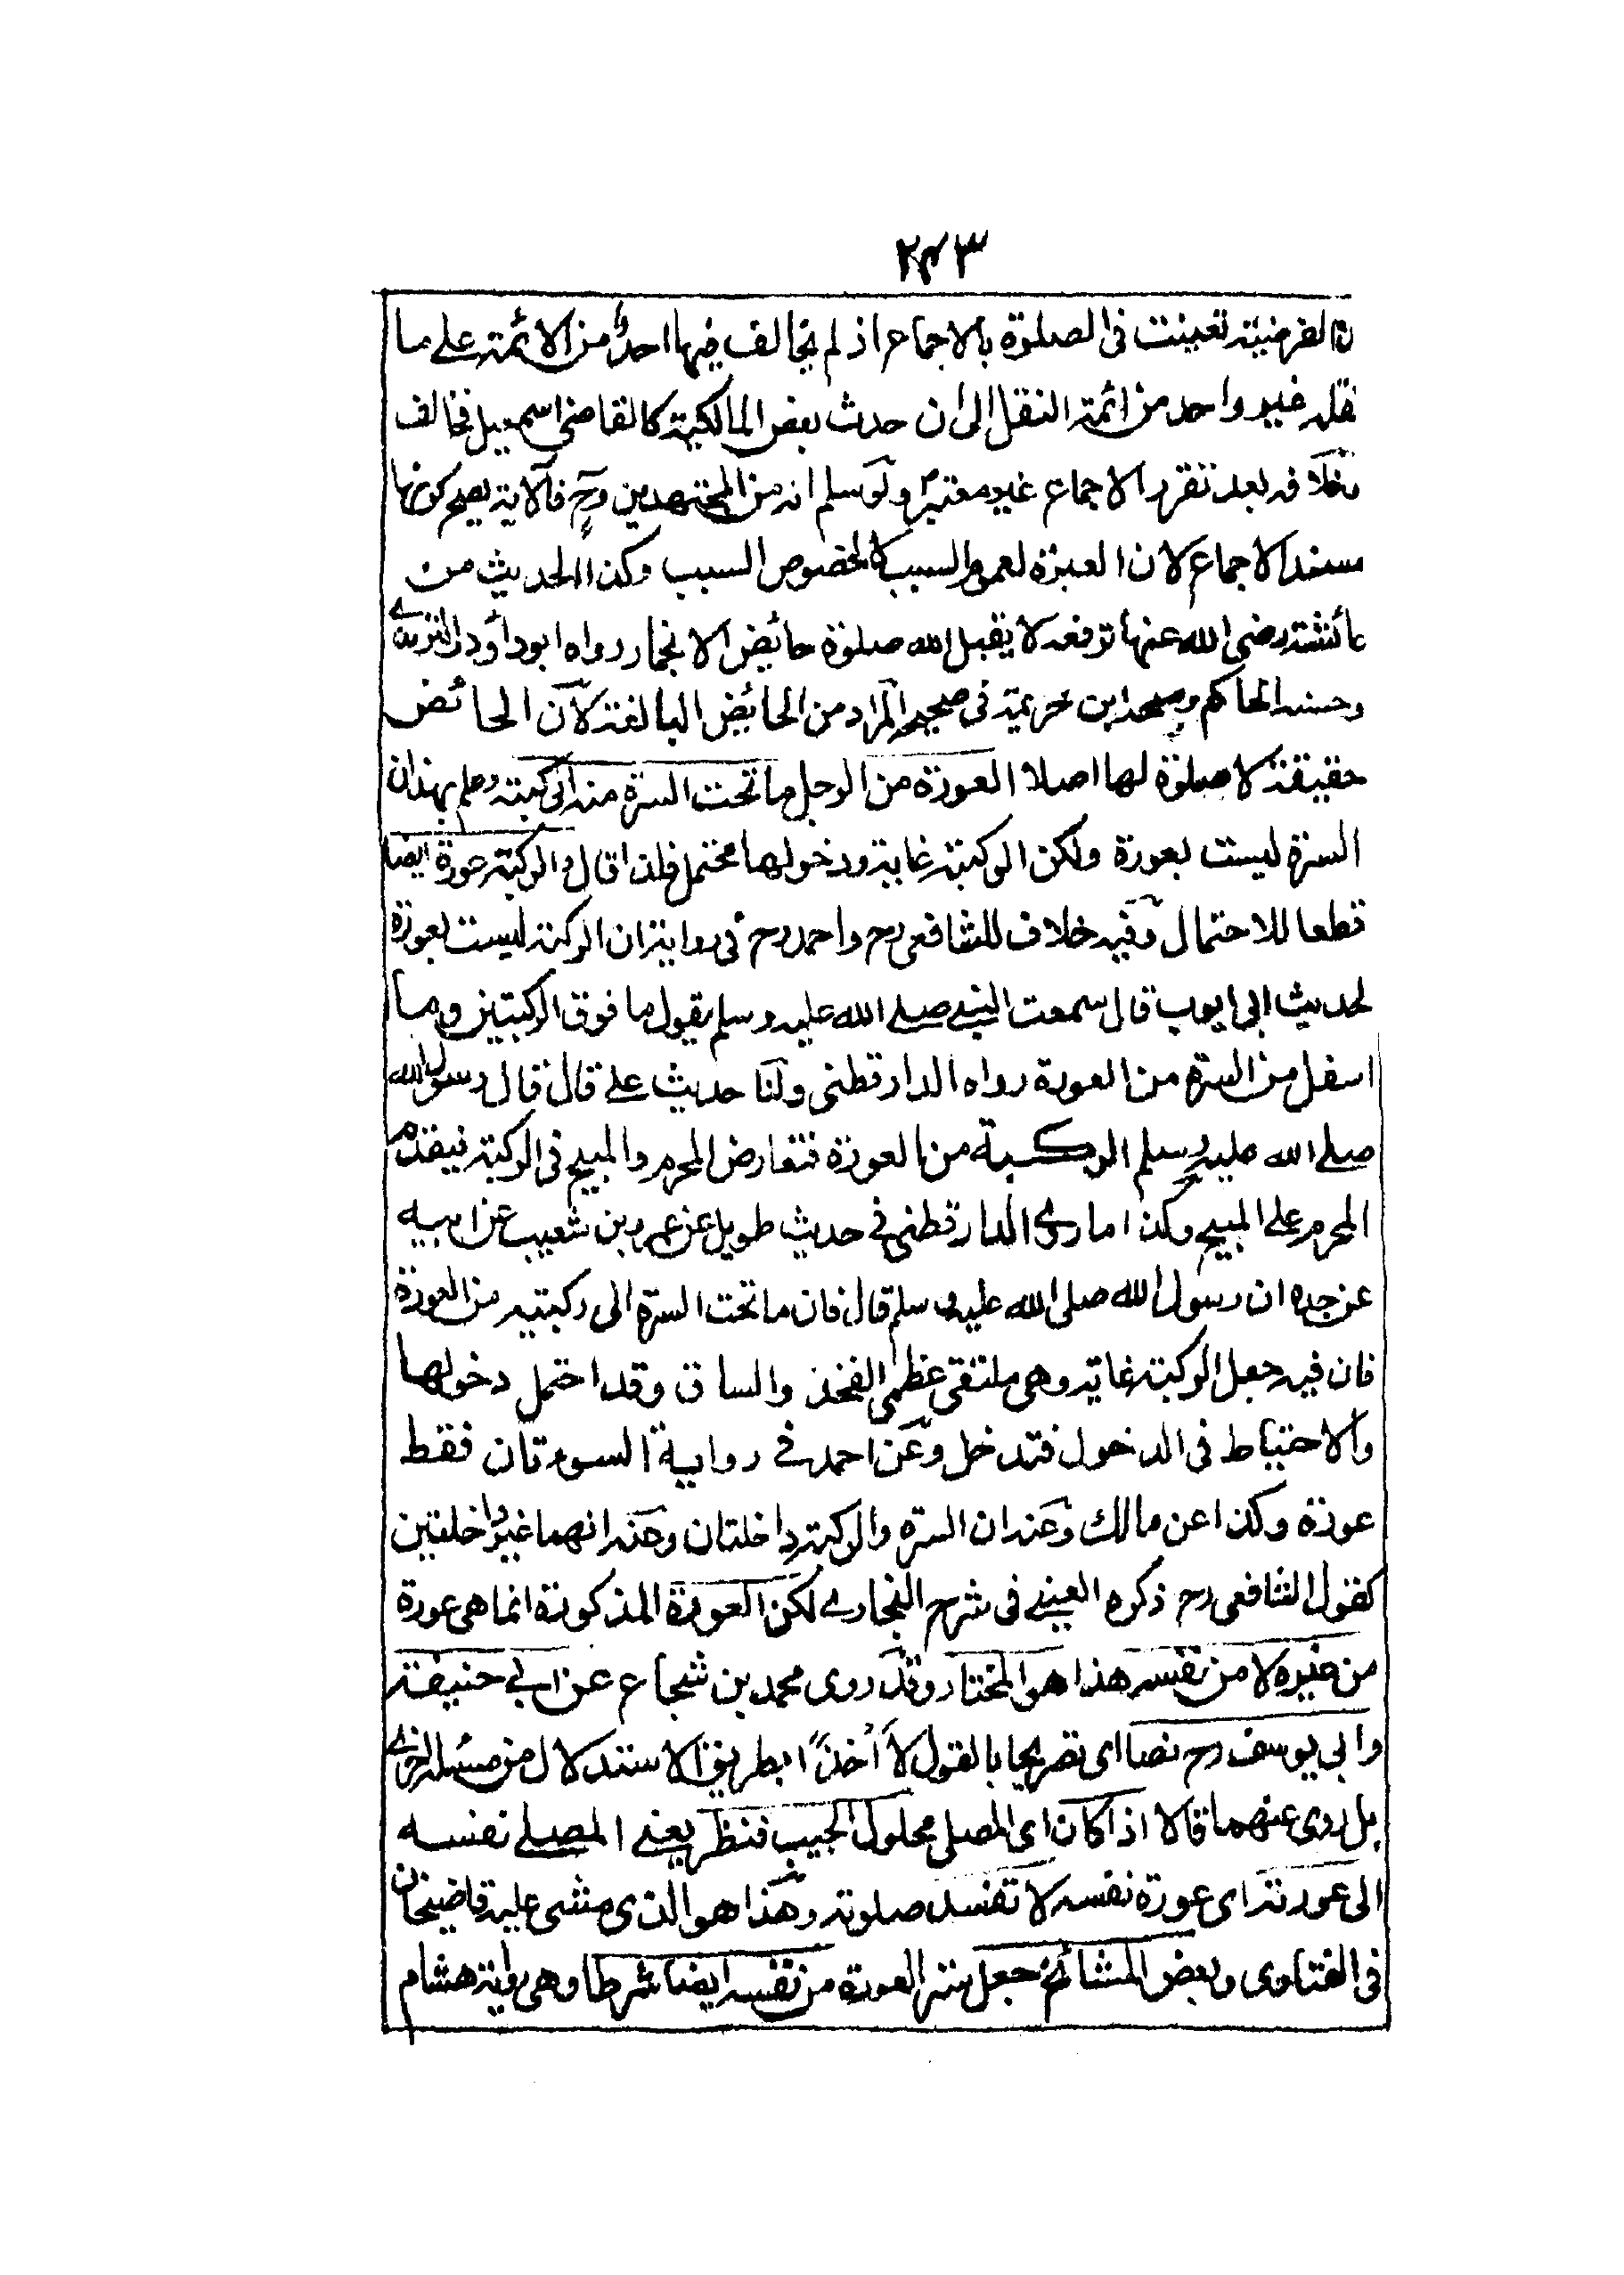 ٢٤٣
ن الفرضية تعينت فى الصلوة بالاجماع اذ لم يخالف فيها احد من الائمة على ما
نقله غير واحد من ائمة النقل الى ان حدث بعض المالكية كالقاضى اسمعيل فخالف
فخلافه بعد تقرر الاجماع غير معتبر ولو سلم انه من المجتهدين وح فالآية يصح كونها
مسند الاجماع لان العبرة لعموم السبب لا لخصوص السبب وكذا الحديث من
عائشة رضى الله عنها ترفعه لا يقبل الله صلوة حائض الا بخمار رواه ابو داؤد والترمذى
وحسنه الحاكم وصححه ابن خزيمة فى صحيحه المراد من الحائض البالغة لان الحائض
حقيقة لا صلوة لها اصلا العورة من الرجل ما تحت السرة منه الى ركبته وعلم بهذا ان
السرة ليست بعورة ولكن الركبة غاية ودخولها محتمل فلذا قال والركبة عورة ايضا
قطعا للاحتمال وفيه خلاف للشافعى رح واحمد رح فى رواية ان الركبة ليست بعورة
لحديث ابى ايوب قال سمعت النبى صلى الله عليه وسلم يقول ما فوق الركبتين وما
اسفل من السرة من العورة رواه الدارقطنى ولنا حديث على قال قال رسول الله
صلى الله عليه وسلم الركبة من العورة فتعارض المحرم والمبيح فى الركبة فيقدم
المحرم على المبيح وكذا ما روى الدارقطنى فى حديث طويل عن عمرو بن شعيب عن ابيه
عن جده ان رسول الله صلى الله عليه وسلم قال فان ما تحت السرة الى ركبتيه من العورة
فان فيه جعل الركبة غاية وهى ملتقى عظمى الفخذ والساق وقد احتمل دخولها
والاحتياط فى الدخول فتدخل وعن احمد فى رواية السوءتان فقط
عورة وكذا عن مالك وعنه ان السرة والركبة داخلتان وعنه انهما غير داخلتين
كقول الشافعى رح ذكره العينى فى شرح البخارى لكن العورة المذكورة انما هى عورة
من غيره لا من نفسه هذا هو المختار وقد روى محمد بن شجاع عن ابى حنيفة
وابى يوسف رح نصا اى تصريحا بالقول لا اخذا بطريق الاستدلال من مسئلة اخرى
بل روى عنهما قالا اذا كان اى المصلى محلول الجيب فنظر يعنى المصلى نفسه
الى عورته اى عورة نفسه لا تفسد صلوته وهذا هو الذى مشى عليه قاضيخان
فى الفتاوى وبعض المشائخ جعل ستر العورة من نفسه ايضا شرطا وهى رواية هشام